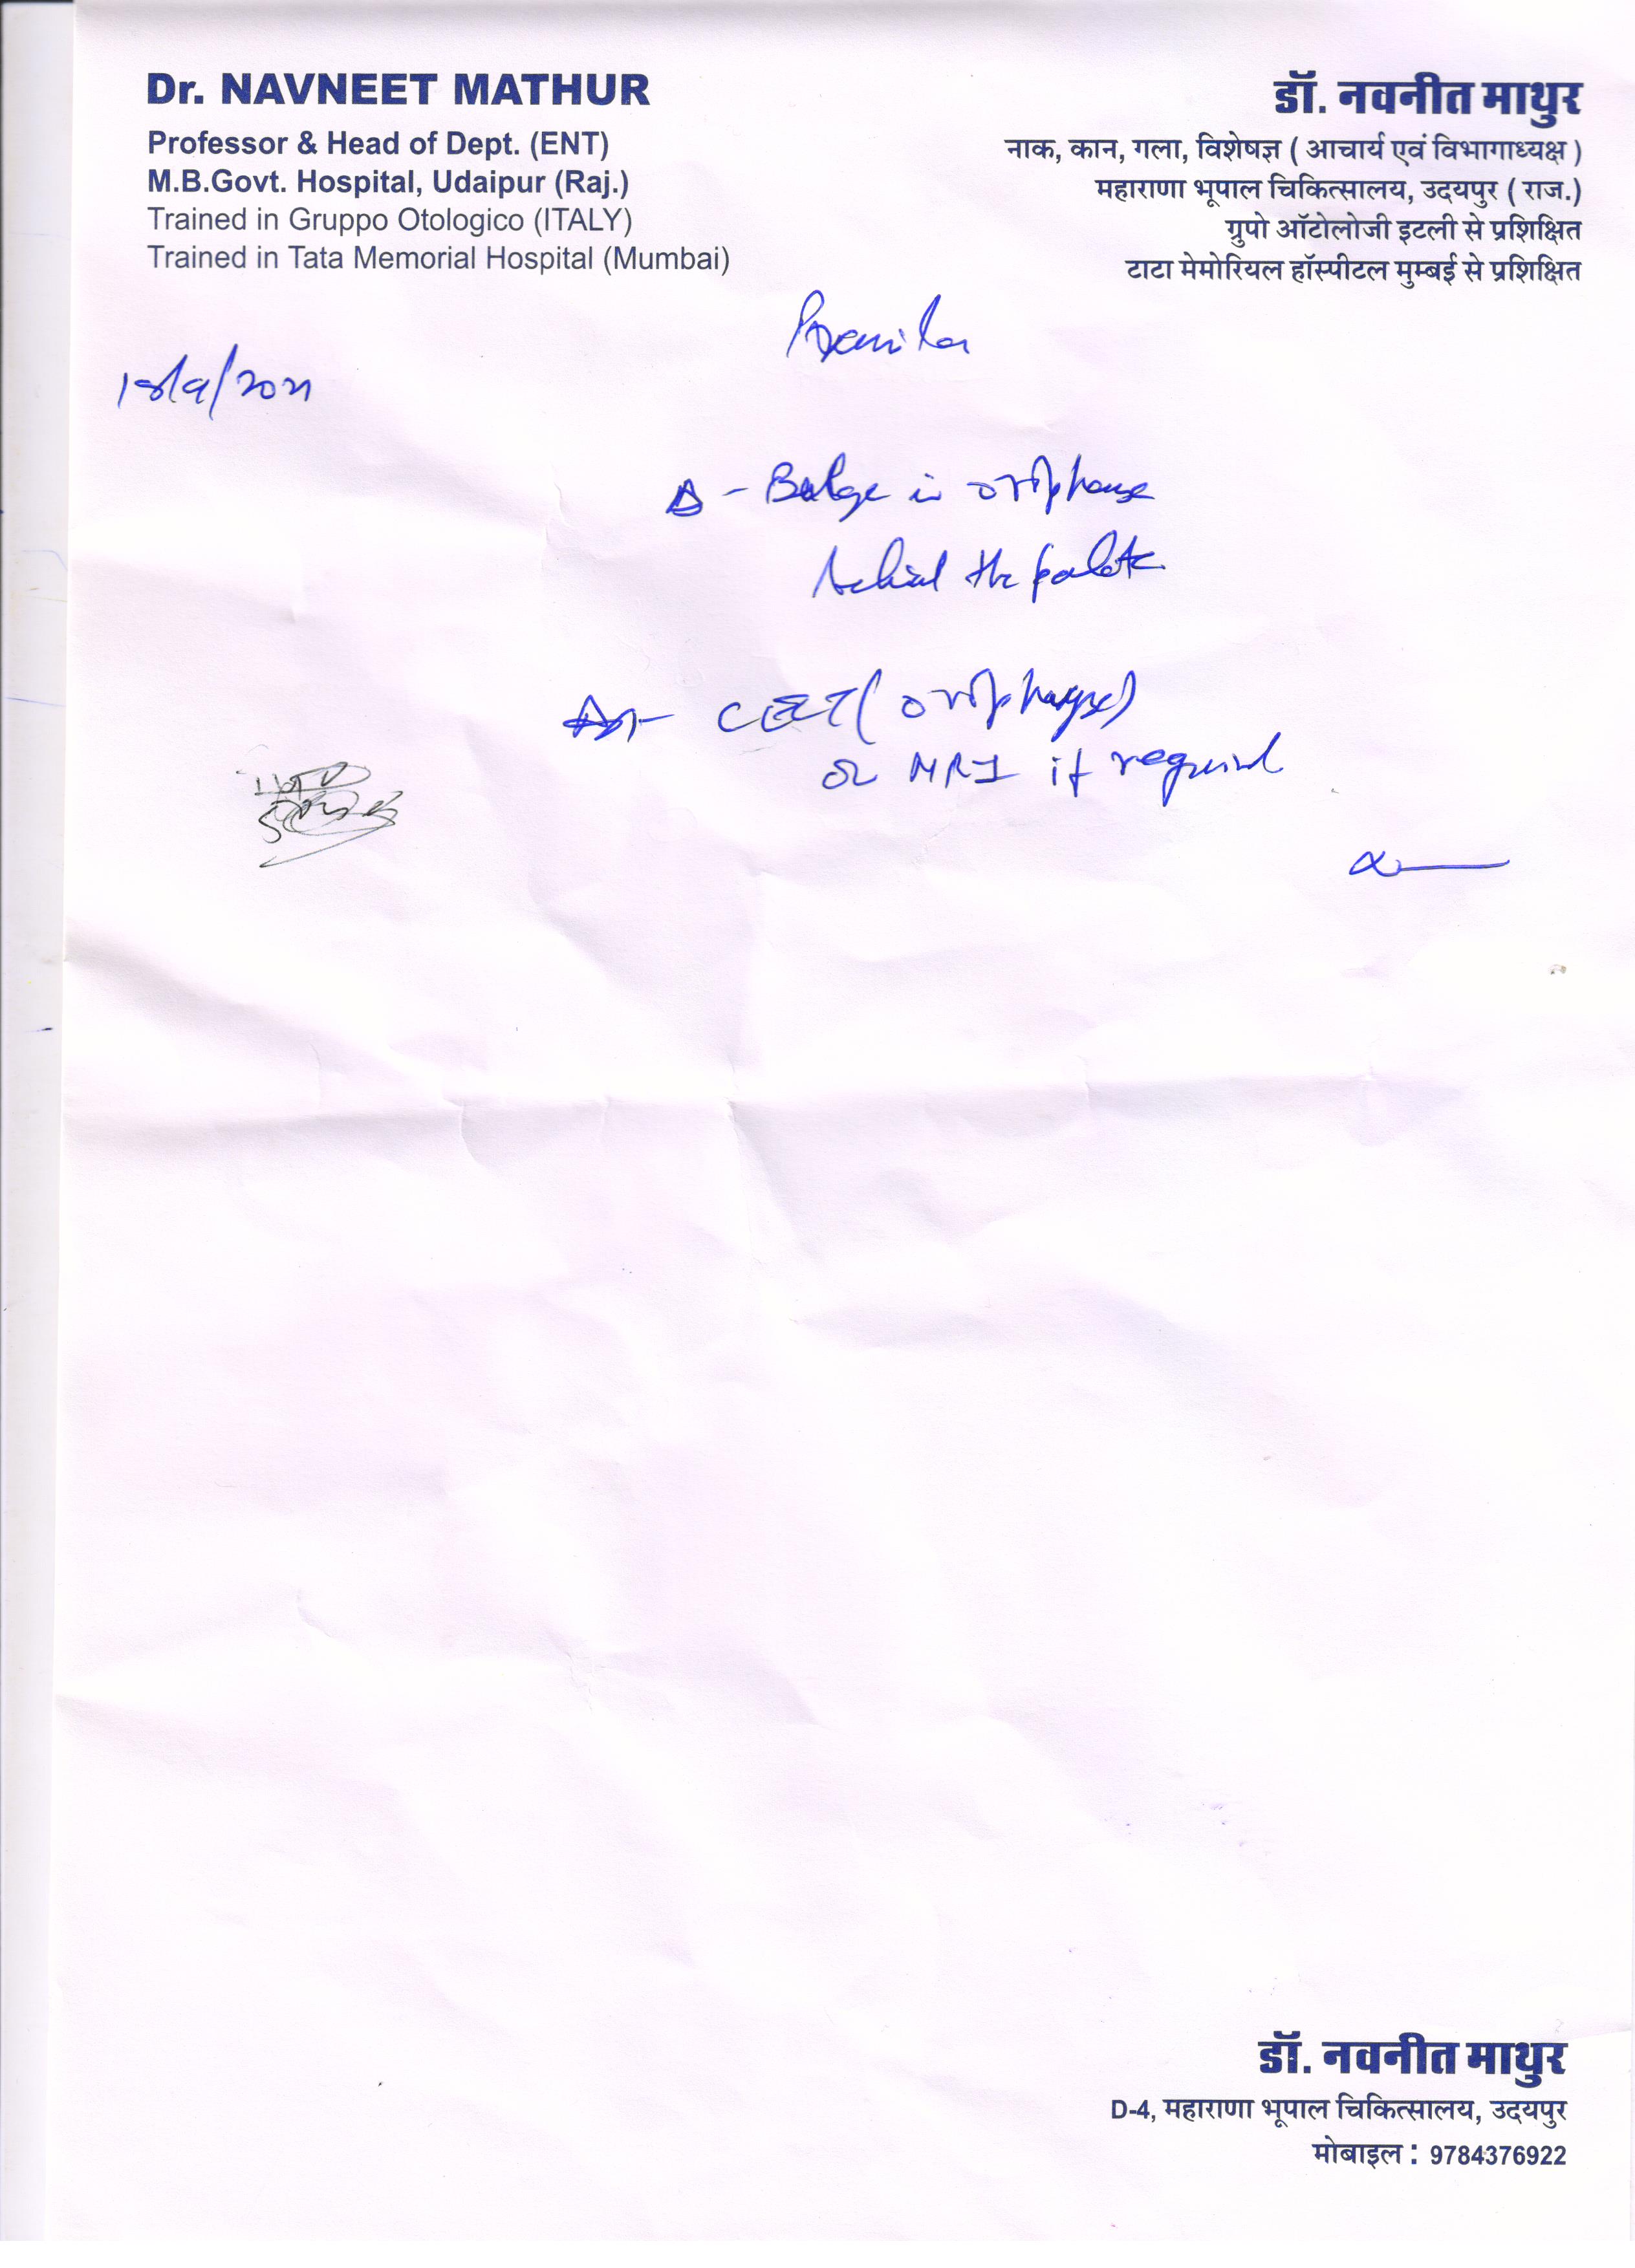 Dr. NAVNEET MATHUR
Professor & Head of Dept. (ENT)
M.B.Govt. Hospital, Udaipur (Raj.)
Trained in Gruppo Otologico (ITALY)
Trained in Tata Memorial Hospital (Mumbai)
डॉ. नवनीत माथुर
नाक, कान, गला, विशेषज्ञ ( आचार्य एवं विभागाध्यक्ष )
महाराणा भूपाल चिकित्सालय, उदयपुर ( राज.)
ग्रुपो ऑटोलोजी इटली से प्रशिक्षित
टाटा मेमोरियल हॉस्पीटल मुम्बई से प्रशिक्षित
18/9/2021
Δ - Bulge in oropharynx
behind the palate
CECT (oropharynx)
or MRI if required
डॉ. नवनीत माथुर
D-4, महाराणा भूपाल चिकित्सालय, उदयपुर
मोबाइल : 9784376922